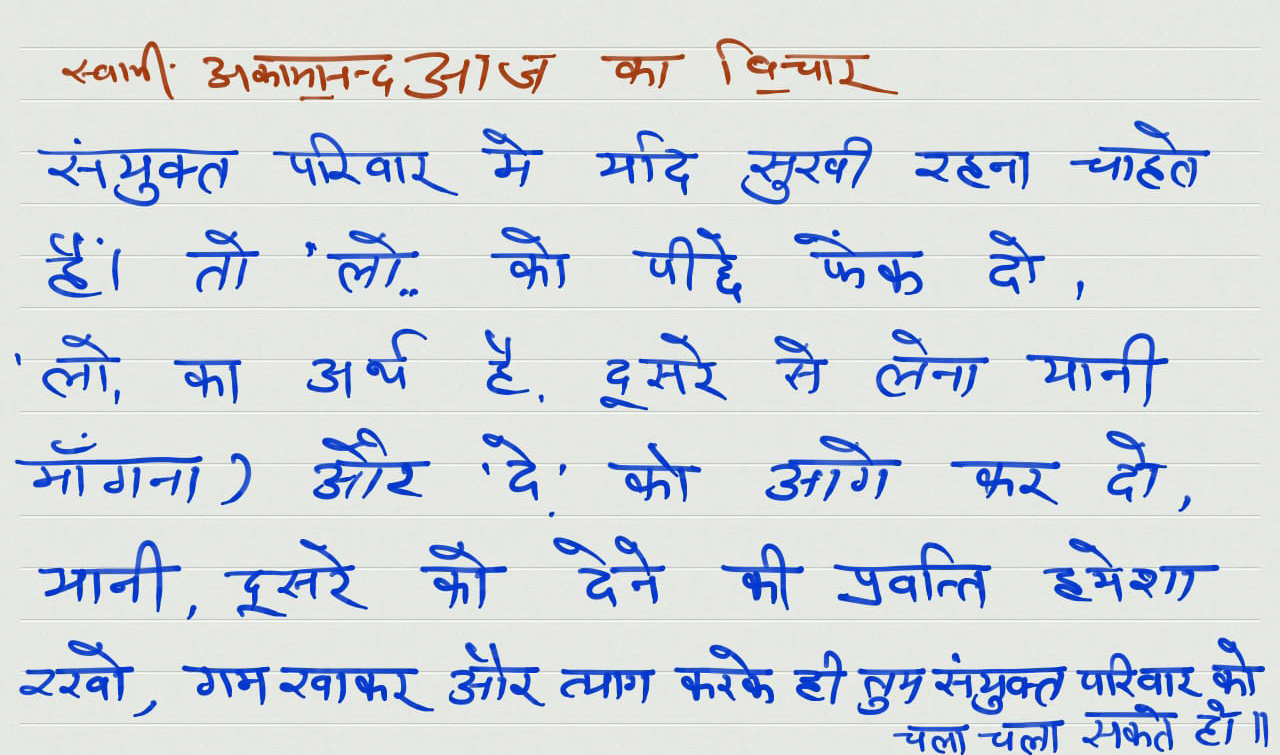 स्वामी अकामानन्द आज का विचार
संयुक्त परिवार मे यदि सुखी रहना चाहते
हैं। तो "लो,, को पीछे फेंक दो,
'लो, का अर्थ है, दूसरे से लेना यानी
माँगना) और 'दे' को आगे कर दो,
यानी, दूसरे को देने की प्रवत्ति हमेशा
रखो, गम खाकर और त्याग करके ही तुम संयुक्त परिवार को
चला चला सकते हो॥